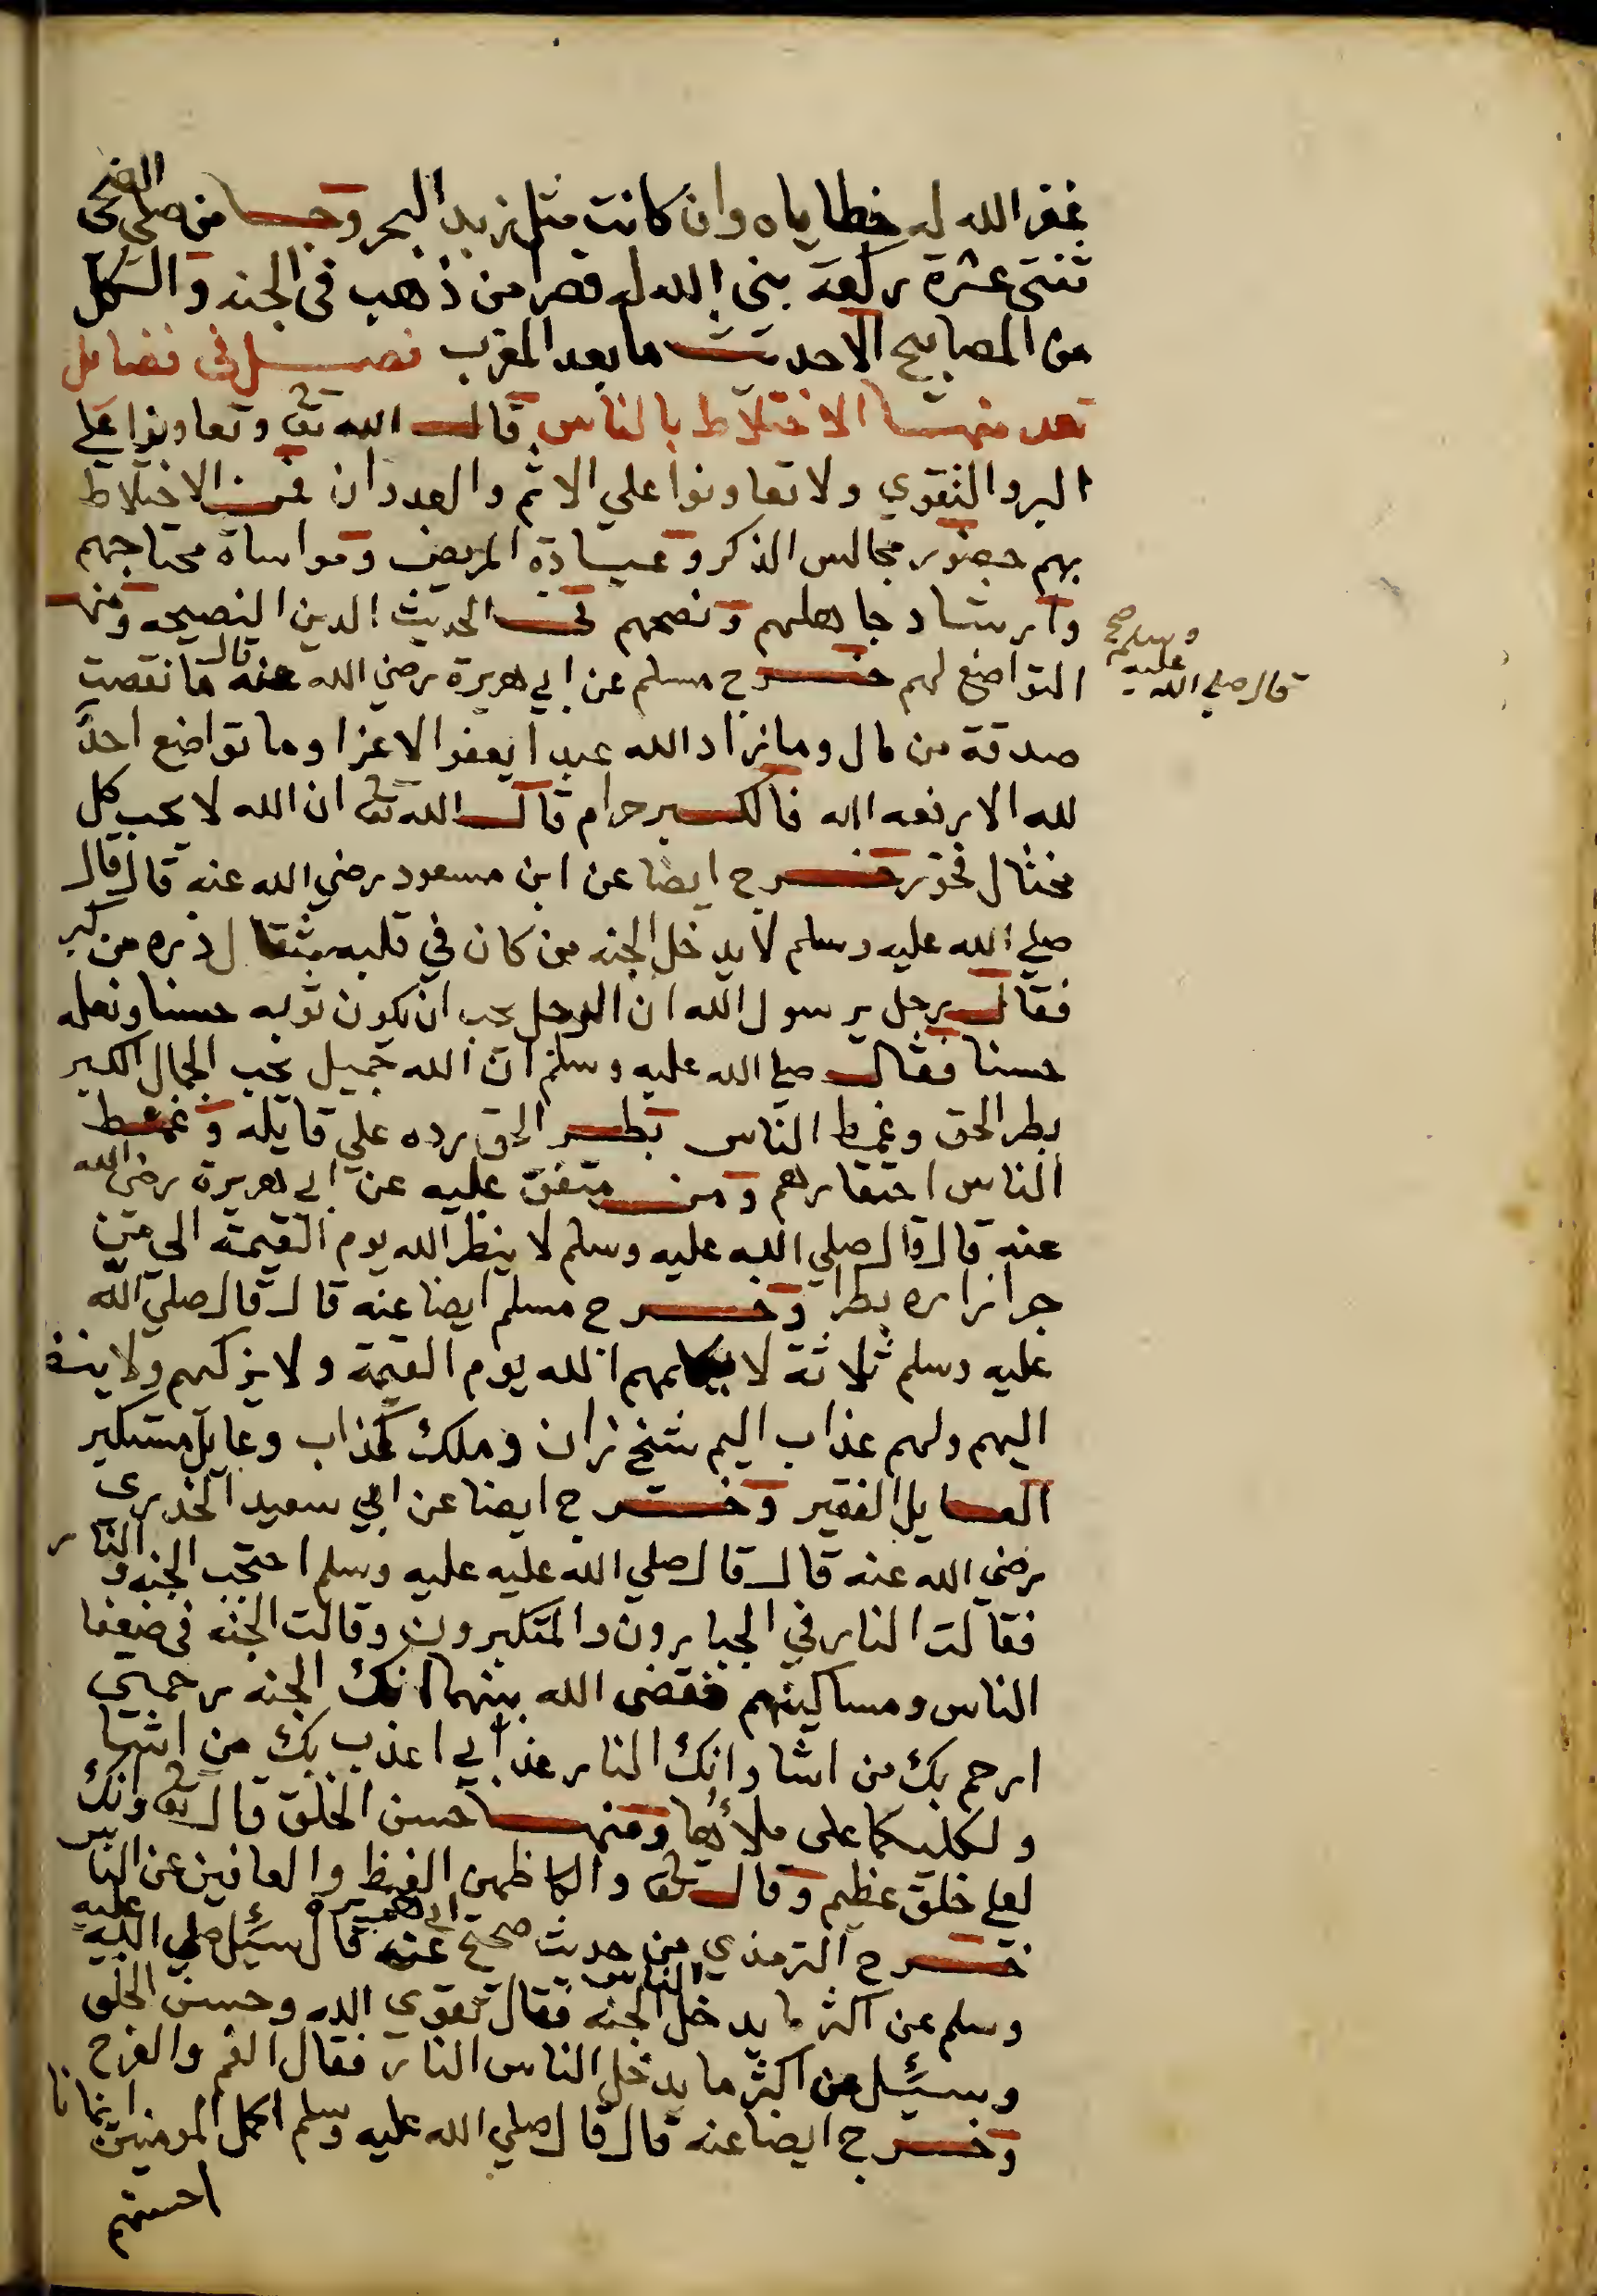 غفر الله له خطاياه وان كانت مثل زبد البحر وجا من صلي الضحى
ثنتى عشرة ركعة بنى الله له قصرا من ذهب فى الجنه والكل
من المصابيح الاحديث مابعد المغرب فصل فى فضايل
تعد منها الاختلاط بالناس قال الله تعٰ وتعاونوا على
البر والتقوي ولا تعاونوا علي الاثم والعدوان فمن الاختلاط
بهم حضور مجالس الذكر وعيادة المريض ومواساة محتاجهم
وارشاد جاهلهم ونصحهم فى الحديث الدين النصيحه ومنها
التواضع لهم خرج مسلم عن ابي هريرة رضي الله عنه قال ما نقصت
قال صلي الله عليه وسلم صح
صدقة من مال وما زاد الله عبدا يعفو الا عزا وما تواضع احدٌ
لله الا رفعه الله فالكبر حرام قال الله تعٰ ان الله لا يحب كل
مختال فخور خرج ايضا عن ابن مسعود رضي الله عنه قال قال
صلي الله عليه وسلم لا يدخل الجنه من كان في قلبه مثقال ذره من كبر
فقال رجل يرسول الله ان الرجل يحب ان يكون ثوبه حسنا ونعله
حسنا فقال صلي الله عليه وسلم ان الله جميل يحب الجمال الكبر
بطر الحق وغمط الناس بطر الحق رده علي قايله وغمط
الناس احتقارهم ومن متفق عليه عن ابي هريرة رضي الله
عنه قال قال صلي الله عليه وسلم لا ينظر الله يوم القيمة الى من
جر ازاره بطرا وخرج مسلم ايضا عنه قال قال صلي الله
عليه وسلم ثلاثة لا يكلمهم الله يوم القيمة ولا يزكهم ولا ينظ
اليهم ولهم عذاب اليم شيخ زان وملك كذاب وعايل مستكبر
العايل الفقير وخرج ايضا عن ابي سعيد الخدرى
رضي الله عنه قال قال صلي الله عليه عليه وسلم احتجب الجنه والنار
فقالت النار في الجبارون والمتكبرون وقالت الجنه فى ضعفا
الناس ومساكينهم فقضى الله بينهما انك الجنه رحمتي
ارحم بك من اشا وانك النار عذابي اعذب بك من اشا
ولكليكما على ملاؤها ومنها حسن الخلق قال تعٰ وانك
لعلي خلق عظيم وقال تعٰ والكاظمين الغيظ والعافين عن الناس
خرج الترمذي من حديث صحيح عنه ابي هريرة قال سئل صلي الله عليه
وسلم عن اكثر ما يدخل الناس الجنه فقال تقوي الله وحسن الخلق
وسئل عن اكثر ما يدخل الناس النار فقال الفم والفرج
وخرج ايضا عنه قال قال صلي الله عليه وسلم اكمل المومنين ايمانا
احسنهم